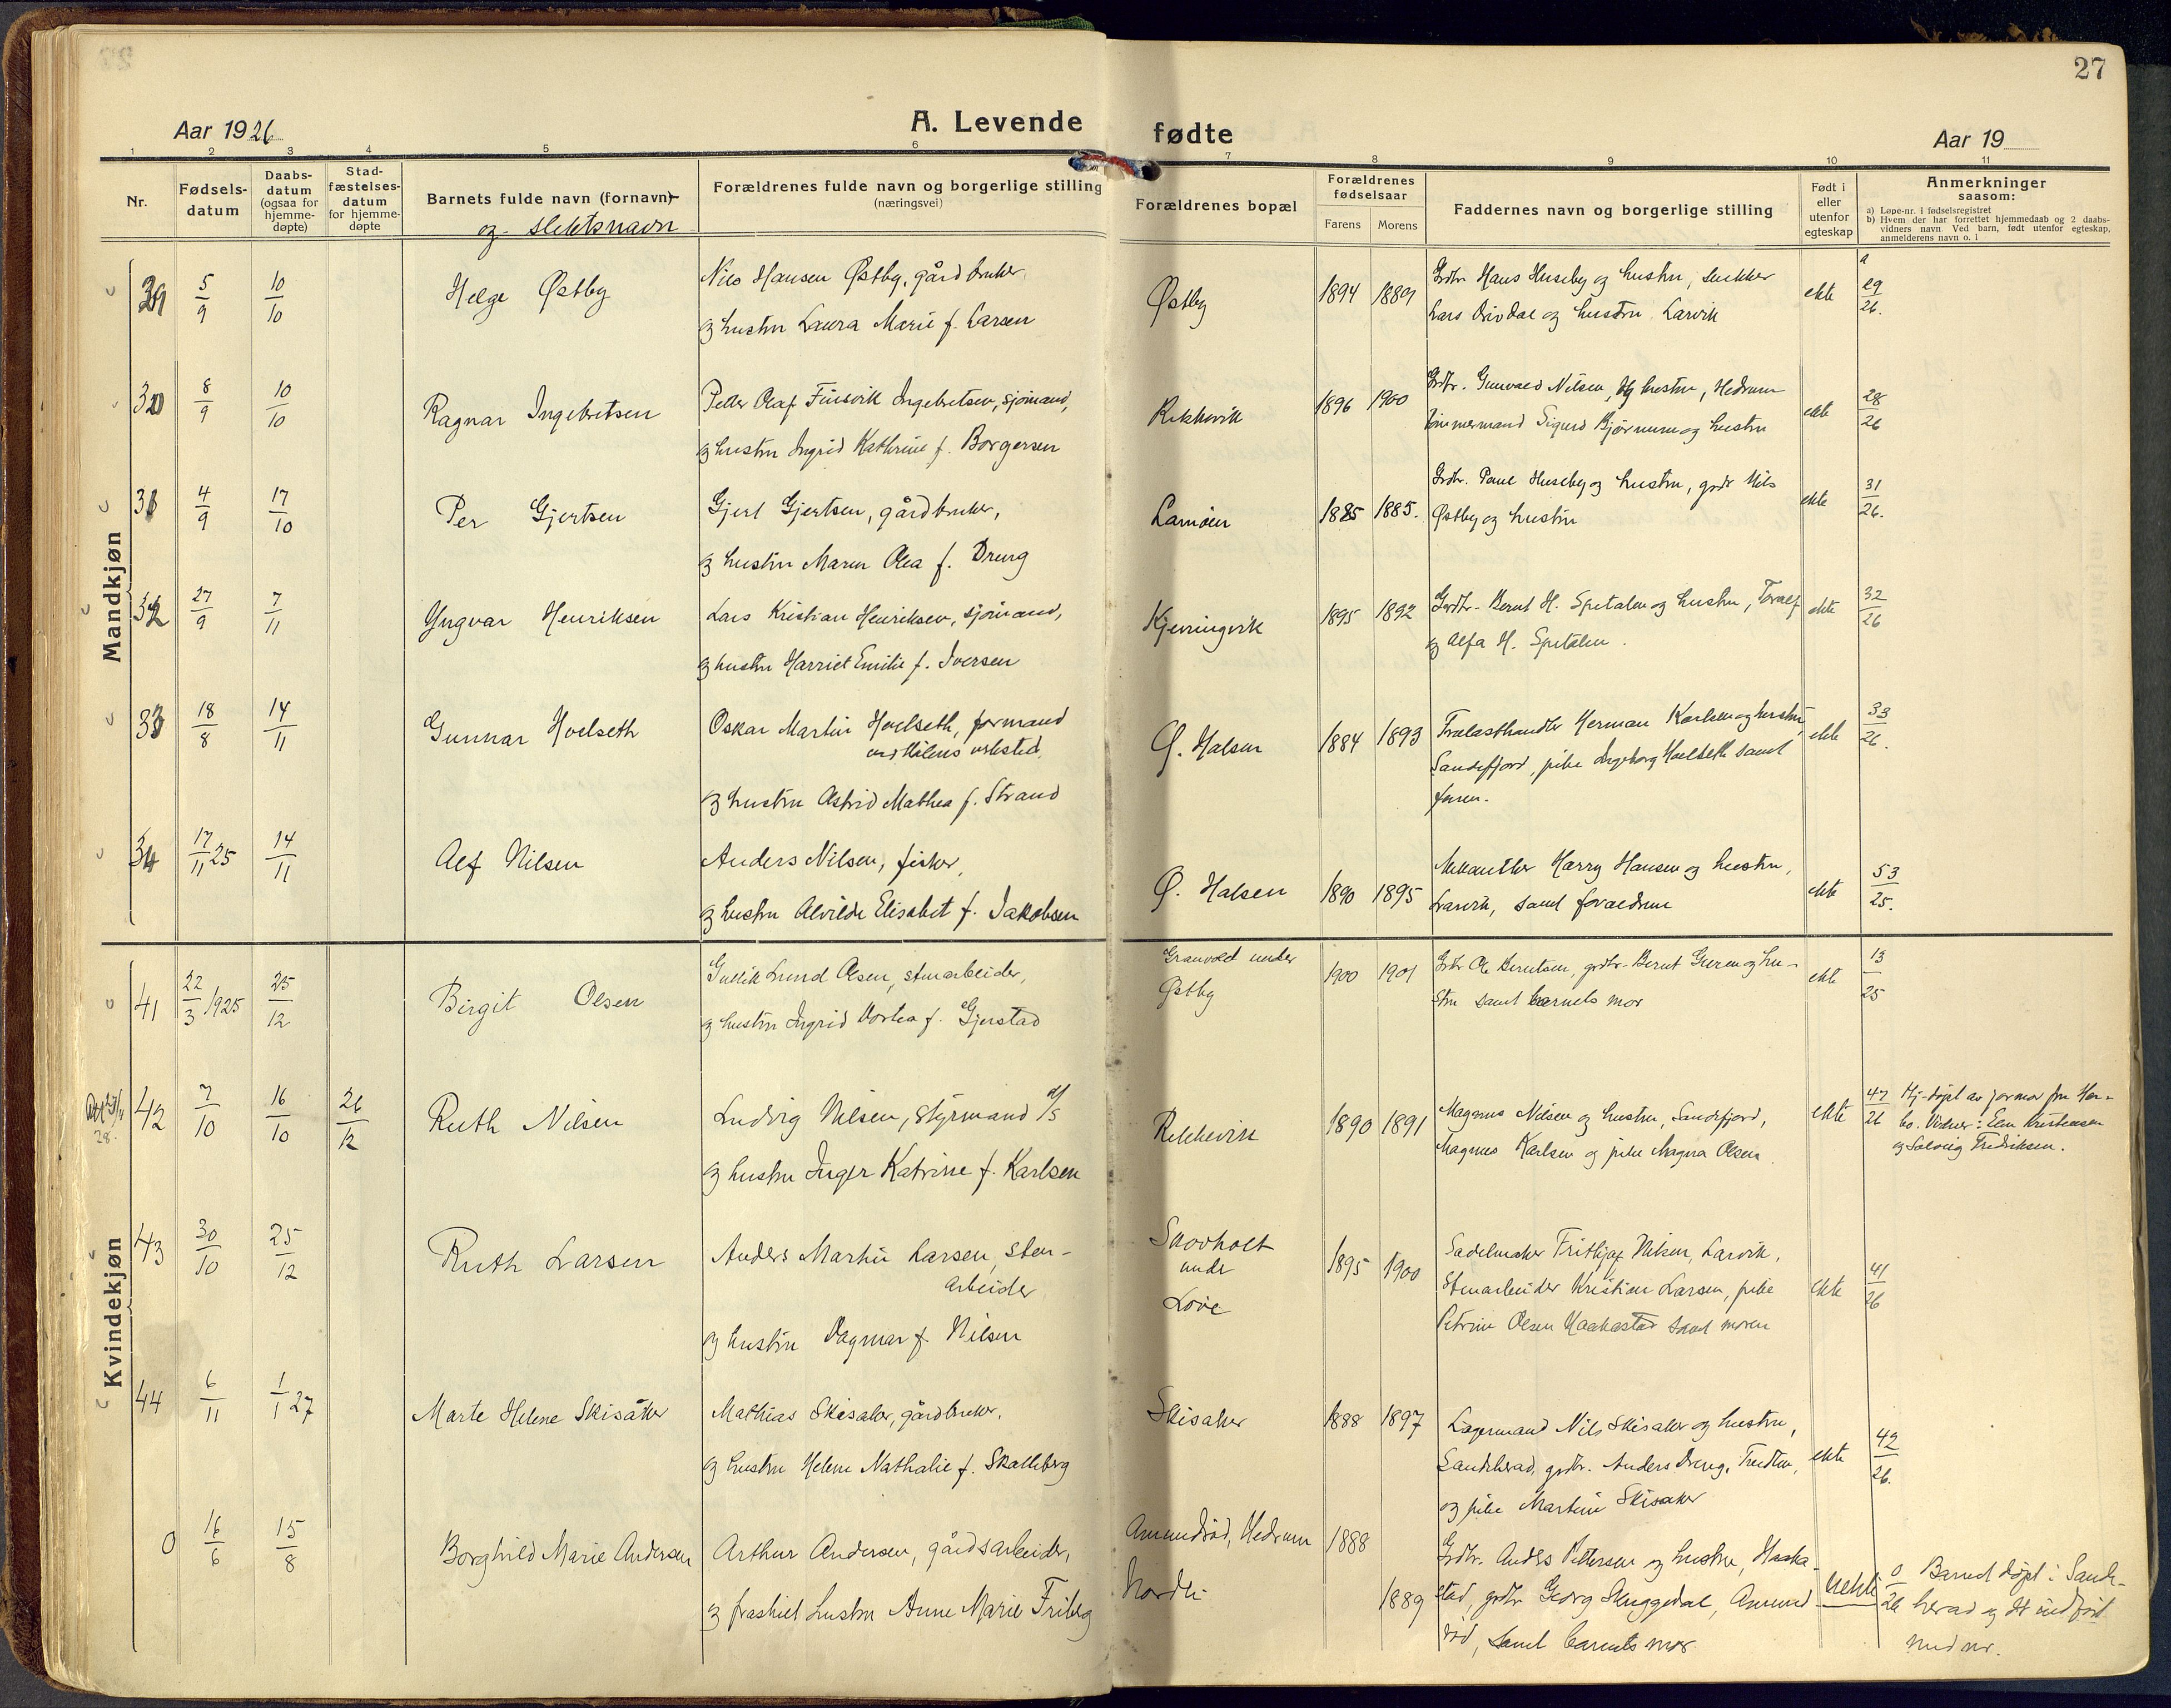 27
Aar 1926
A. Levende
fødte
Aar 19
1 2 3 4 5 6 7 8 9 10 11
Nr.
Fødsels-
datum
Daabs-
datum
(ogsaa for
hjemme-
døpte)
Stad-
fæstelses-
datum
for hjemme-
døpte
Barnets fulde navn (fornavn)
og slektsnavn
Forældrenes fulde navn og borgerlige stilling
(næringsvei)
Forældrenes bopæl
Forældrenes
fødselsaar
Farens Morens
Faddernes navn og borgerlige stilling
Født i
eller
utenfor
egteskap
Anmerkninger
saasom:
a) Løpe-nr. i fødselsregistret
b) Hvem der har forrettet hjemmedaab og 2 daabs-
vidners navn. Ved barn, født utenfor egteskap,
anmelderens navn o. l
Mandkjøn
29 5/9 10/10 Helge Østby
Nils Hansen Østby, gårdbruker,
og hustru Laura Marie f. Larsen
Østby 1894 1889
Grdbr. Hans Huseby og hustru, snekker
Lars og hustru Larvik
ekte
a
29/26.
30 8/9 10/10 Ragnar Ingebretsen
Petter Olaf Finsvik Ingebretsen, sjømand,
og hustru Ingrid Kathrine f. Borgersen
Rekkevik 1896 1900
Grdbr. Gunvald Nilsen og hustru, Hedrum
tømmermand Sigurd Bjørnum og hustru
ekte 28/26
31 4/9 17/10 Per Gjertsen
Gjert Gjertsen, gårdbruker,
og hustru Maren Olea f. Dreng
Lamøen 1885 1885.
Grdbr. Paul Huseby og hustru, grdbr Nils
Østby og hustru
ekte 31/26.
32 27/9 7/11 Yngvar Henriksen
Lars Kristian Henriksen, sjømand,
og hustru Harriet Emilie f. Iversen
Kjerringvik 1895 1892
Grdbr. Bernt H. Spetalen og hustru, Toralf
og Alfa H. Spetalen.
ekte 32/26
33 18/8 14/11 Gunnar Hoelseth
Oskar Martin Hoelseth, formand
ved verksted,
og hustru Astrid Mathea f. Strand
Ø. Halsen 1884 1893
Trælasthandler Herman Karlsen og hustru,
Sandefjord, pike Ingeborg Hoelseth samt
faren.
ekte 33/26.
34 17/11 25 14/11 Alf Nilsen
Anders Nilsen, fisker,
og hustru Alvilde Elisabet f. Jakobsen
Ø. Halsen 1890 1895
Mekaniker Harry Hansen og hustru,
Larvik, samt forældrene
ekte 53/25.
Kvindekjøn
41 22/3 1925 25/12 Birgit Olsen
Gullik Lund Olsen, stenarbeider,
og hustru Ingrid Dortea f. Gjerstad
Granvold under
Østby 1900 1901
Grdbr Ole Berntsen, grdbr. Bernt og hu-
stru samt barnets mor
ekte 13/25
42 7/10 16/10 26/12 Ruth Nilsen
Ludvig Nilsen, styrmand
og hustru Inger Katrine f. Karlsen
Rekkevik 1890 1891
Magnus Nilsen og hustru, Sandefjord,
Magnus Karlsen og pike Magna Olsen
ekte 47/26 Hj-døpt av jormor fru
Vidner: Elen Kristensen
og Solveig Fredriksen.
43 30/10 25/12 Ruth Larsen
Anders Martin Larsen, sten-
arbeider
og hustru Dagmar f. Nilsen
Skovholt
under
Løve 1895 1900
Sadelmaker Frithjof Nilsen, Larvik,
Stenarbeider Kristian Larsen, pike
Petrine Olsen Haakestad samt moren
ekte 41/26
44 6/11 1/1 27 Marte Helene Skisåker
Mathias Skisaker, gårdbruker,
og hustru Helene Nathalie f. Skalleberg
Skisaker 1888 1897
Lagermand Nils Skisaker og hustru,
Sandeherad, grdbr. Anders Dreng,
og pike Martine Skisaker
ekte 42/26.
0 16/6 15/8 Borghild Marie Andersen
Arthur Andersen, gårdsarbeider,
og fraskilt hustru Anne Marie Friberg
Amundrød, Hedrum 1888
Nordli 1889
Grdbr. Anders Pettersen og hustru, Haake-
stad, grdbr Georg Skuggedal, Amund-
rød, samt barnets mor.
Uekte 0/26 Barnet døpt i Sande-
herad og indført
med nr.